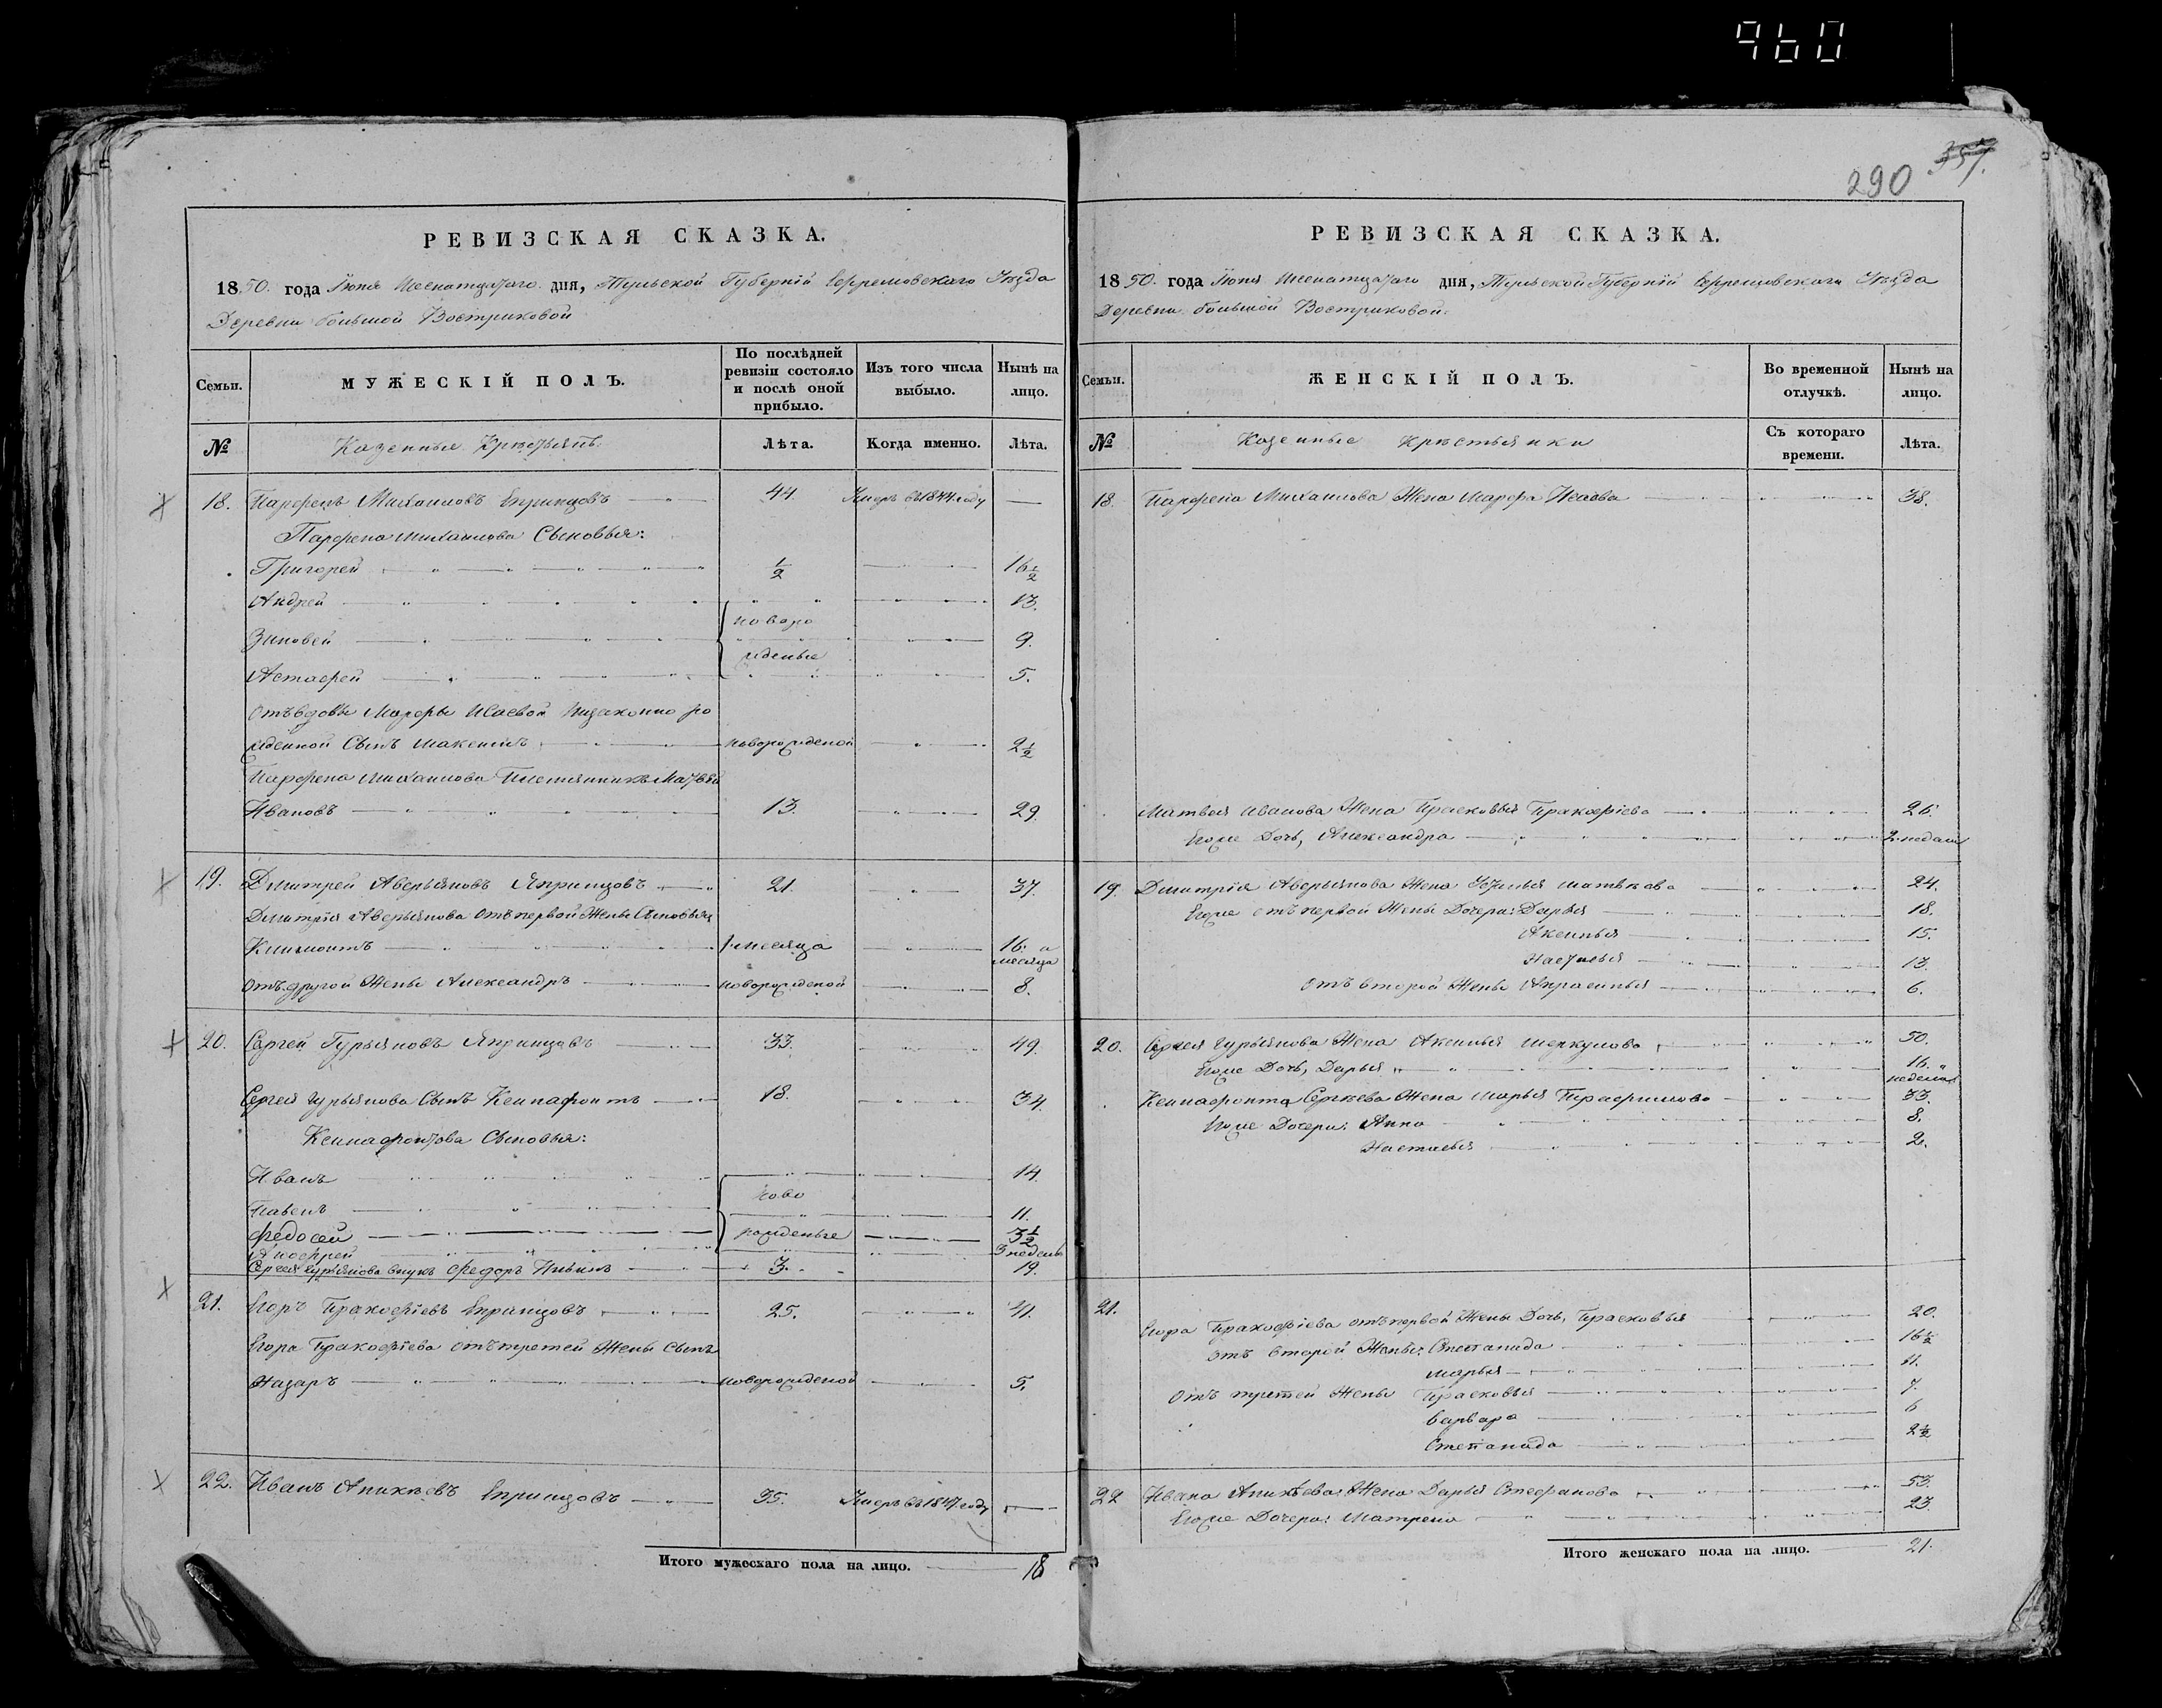 960
290 357.
РЕВИЗСКАЯ СКАЗКА.
1850. года Іюня Шеснатцатаго дня, Тульской Губерніи Ефремовскаго Уѣзда
Деревни большой Востриковой
Семьи.
МУЖЕСКІЙ ПОЛЪ.
По послѣдней ревизіи состояло и послѣ оной прибыло.
Изъ того числа выбыло.
Нынѣ на лицо.
№ Казенные Крестьянѣ Лѣта. Когда именно. Лѣта.
18. Парфенъ Михаиловъ Епринцовъ 44 Умеръ въ 1844 году
Парфена Михаилова Сыновья:
Григорей ½ 16½
Андрей 13.
новоро
Зиновей 9.
жденые
Астафей 5.
Отъ вдовы Марфы Исаевой незаконно ро
жденной Сынъ Макеимъ новорожденой 2½
Парфена Михаилова Племянникъ Матвѣй
Ивановъ 13. 29.
19. Дмитрей Аверьяновъ Япринцовъ 21. 37.
Дмитрія Аверьянова отъ первой Жены Сыновья
Климонтъ 1. месяца 16. и месяца
Отъ другой Жены Александръ новорожденой 8.
20. Сергей Гурьяновъ Япринцовъ 33. 49.
Сергея Гурьянова Сынъ Ксинафонтъ 18. 34.
Ксинафонтова Сыновья:
Иванъ 14.
ново
Павелъ 11.
Федосей рожденые 3½
Андрей 3 недель
Сергея Гурьянова внукъ Федоръ Ильинъ 3. 19.
21. Егоръ Пракофіевъ Епринцовъ 25. 41.
Егора Пракофіева отъ третей Жены Сынъ
Назаръ новорожденой 5.
22. Иванъ Аникѣевъ Епринцовъ 35. Умеръ въ 1847 году
Итого мужескаго пола на лицо. 18
РЕВИЗСКАЯ СКАЗКА.
1850. года Іюня Шеснатцатаго дня, Тульской Губерніи Ефремовскаго Уѣзда
Деревни большой Востриковой.
Семьи.
ЖЕНСКІЙ ПОЛЪ.
Во временной отлучкѣ.
Нынѣ на лицо.
№ Казенные крестьянки Съ котораго времени. Лѣта.
18. Парфена Михаилова Жена Марфа Исаова 38.
Матвея Иванова Жена Прасковья Пракофіева 26.
Егоже Дочь, Александра 2. недели
19. Дмитрія Аверьянова Жена Устинья 24.
Егоже отъ первой Жены Дочери: Дарья 18.
Аксинья 15.
Настасья 13.
отъ второй Жены Апрасинья 6.
20. Сергея Гурьянова Жена Аксинья Меркулова 50.
Егоже Дочь, Дарья 16. недель
Ксинафонта Сергѣева Жена Марья Трафимова 33.
Егоже Дочери: Анна 8.
Настасья 2.
21. Егора Пракофіева отъ первой Жены Дочь, Прасковья 20.
отъ второй Жены: Степанида 16½
Марья 11.
отъ третей Жены Прасковья 7.
Варвара 6
Степанида 2½
22 Ивана Аникѣева Жена Дарья Стефанова 53.
Егоже Дочери: Матрена 23.
Итого женскаго пола на лицо. 21.